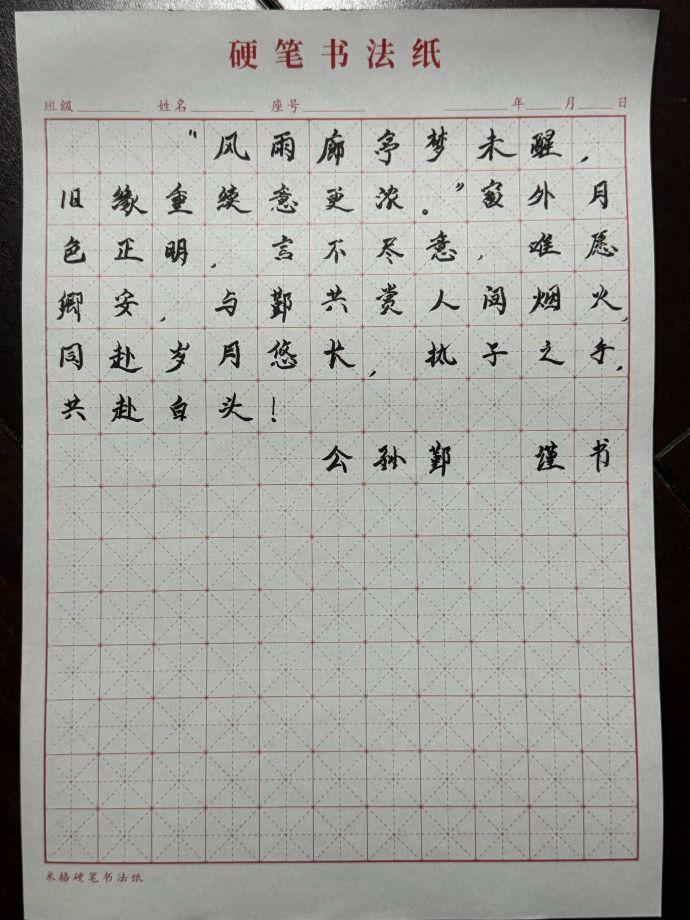 硬笔书法纸
班级 姓名 座号 年 月 日
“风雨廊亭梦未醒，
旧缘重续意更浓。”窗外月
色正明，言不尽意，难愿
卿安，与鄞共赏人间烟火，
同赴岁月悠长，执子之手，
共赴白头！
公孙鄞 谨书
米格硬笔书法纸